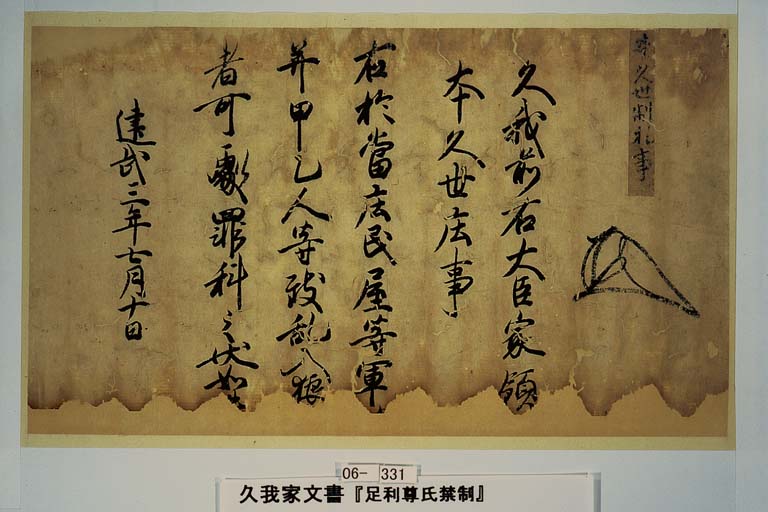 本久世制札事
久我前右大臣家領
本久世庄事
右於當庄民屋等軍
并甲乙人等致乱入狼
者可處罪科之状如
建武三年七月十日
06-331
久我家文書『足利尊氏禁制』